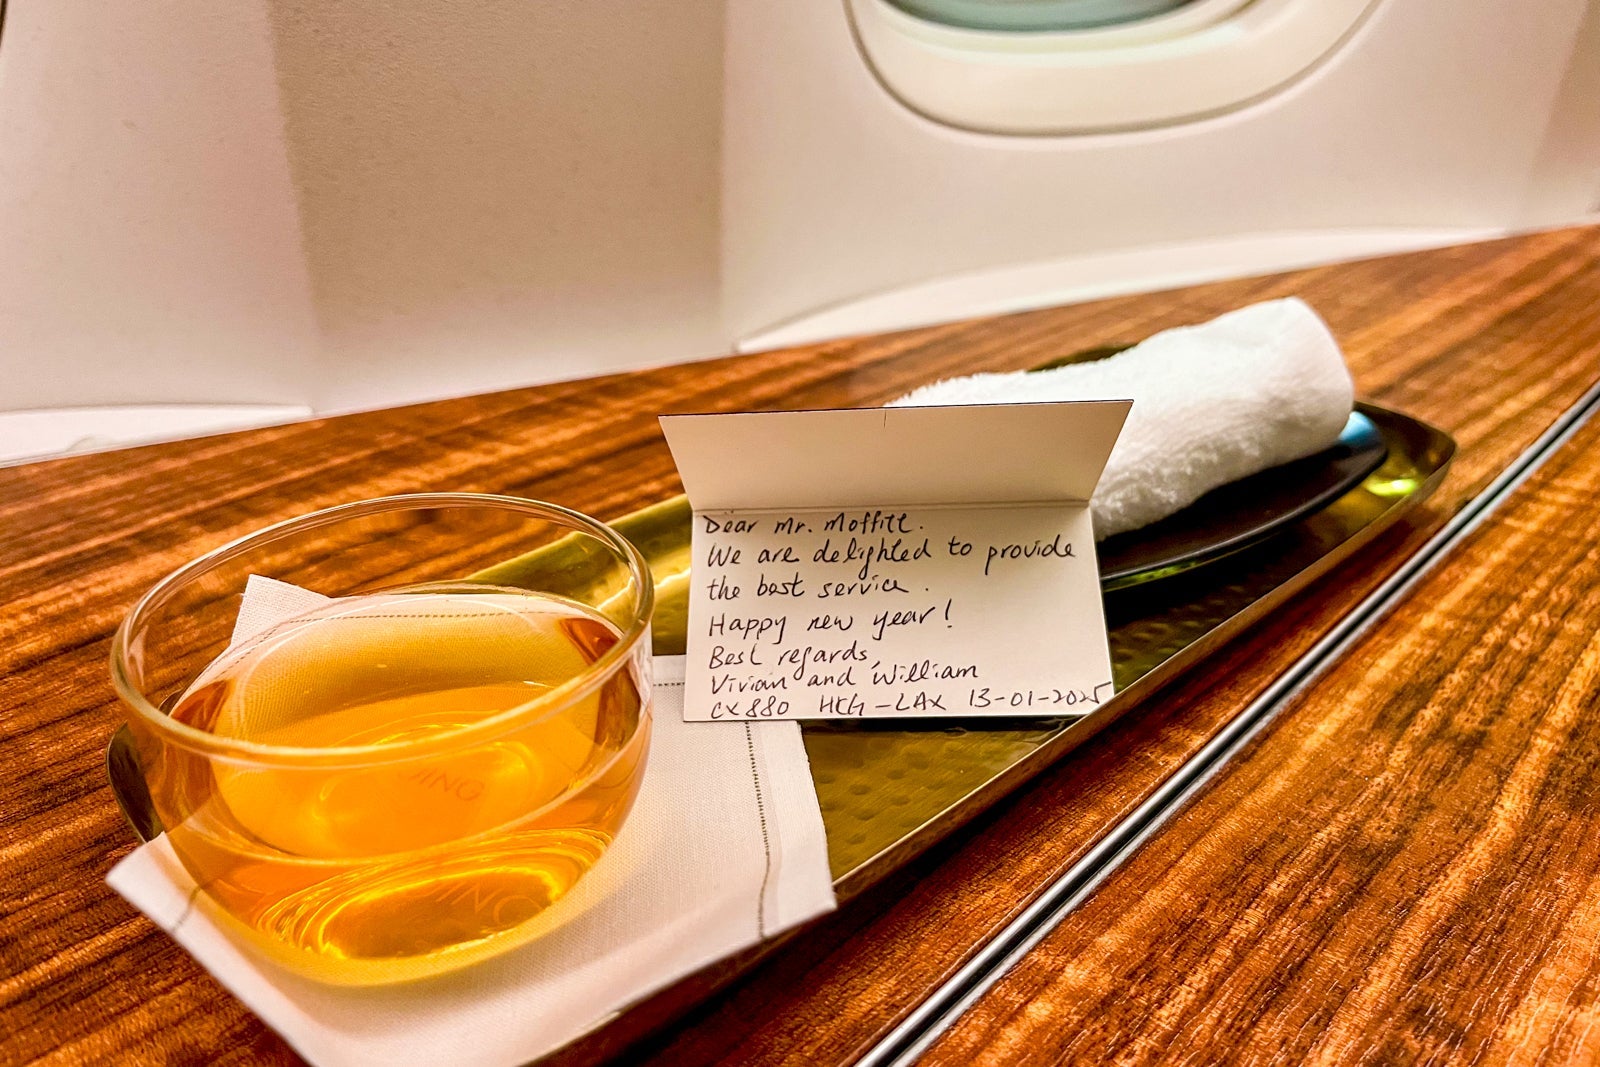 Dear Mr. Moffitt.
We are delighted to provide
the best service.
Happy new year!
Best regards,
Vivian and William
CX880 HKG-LAX 13-01-2025
JING
JING